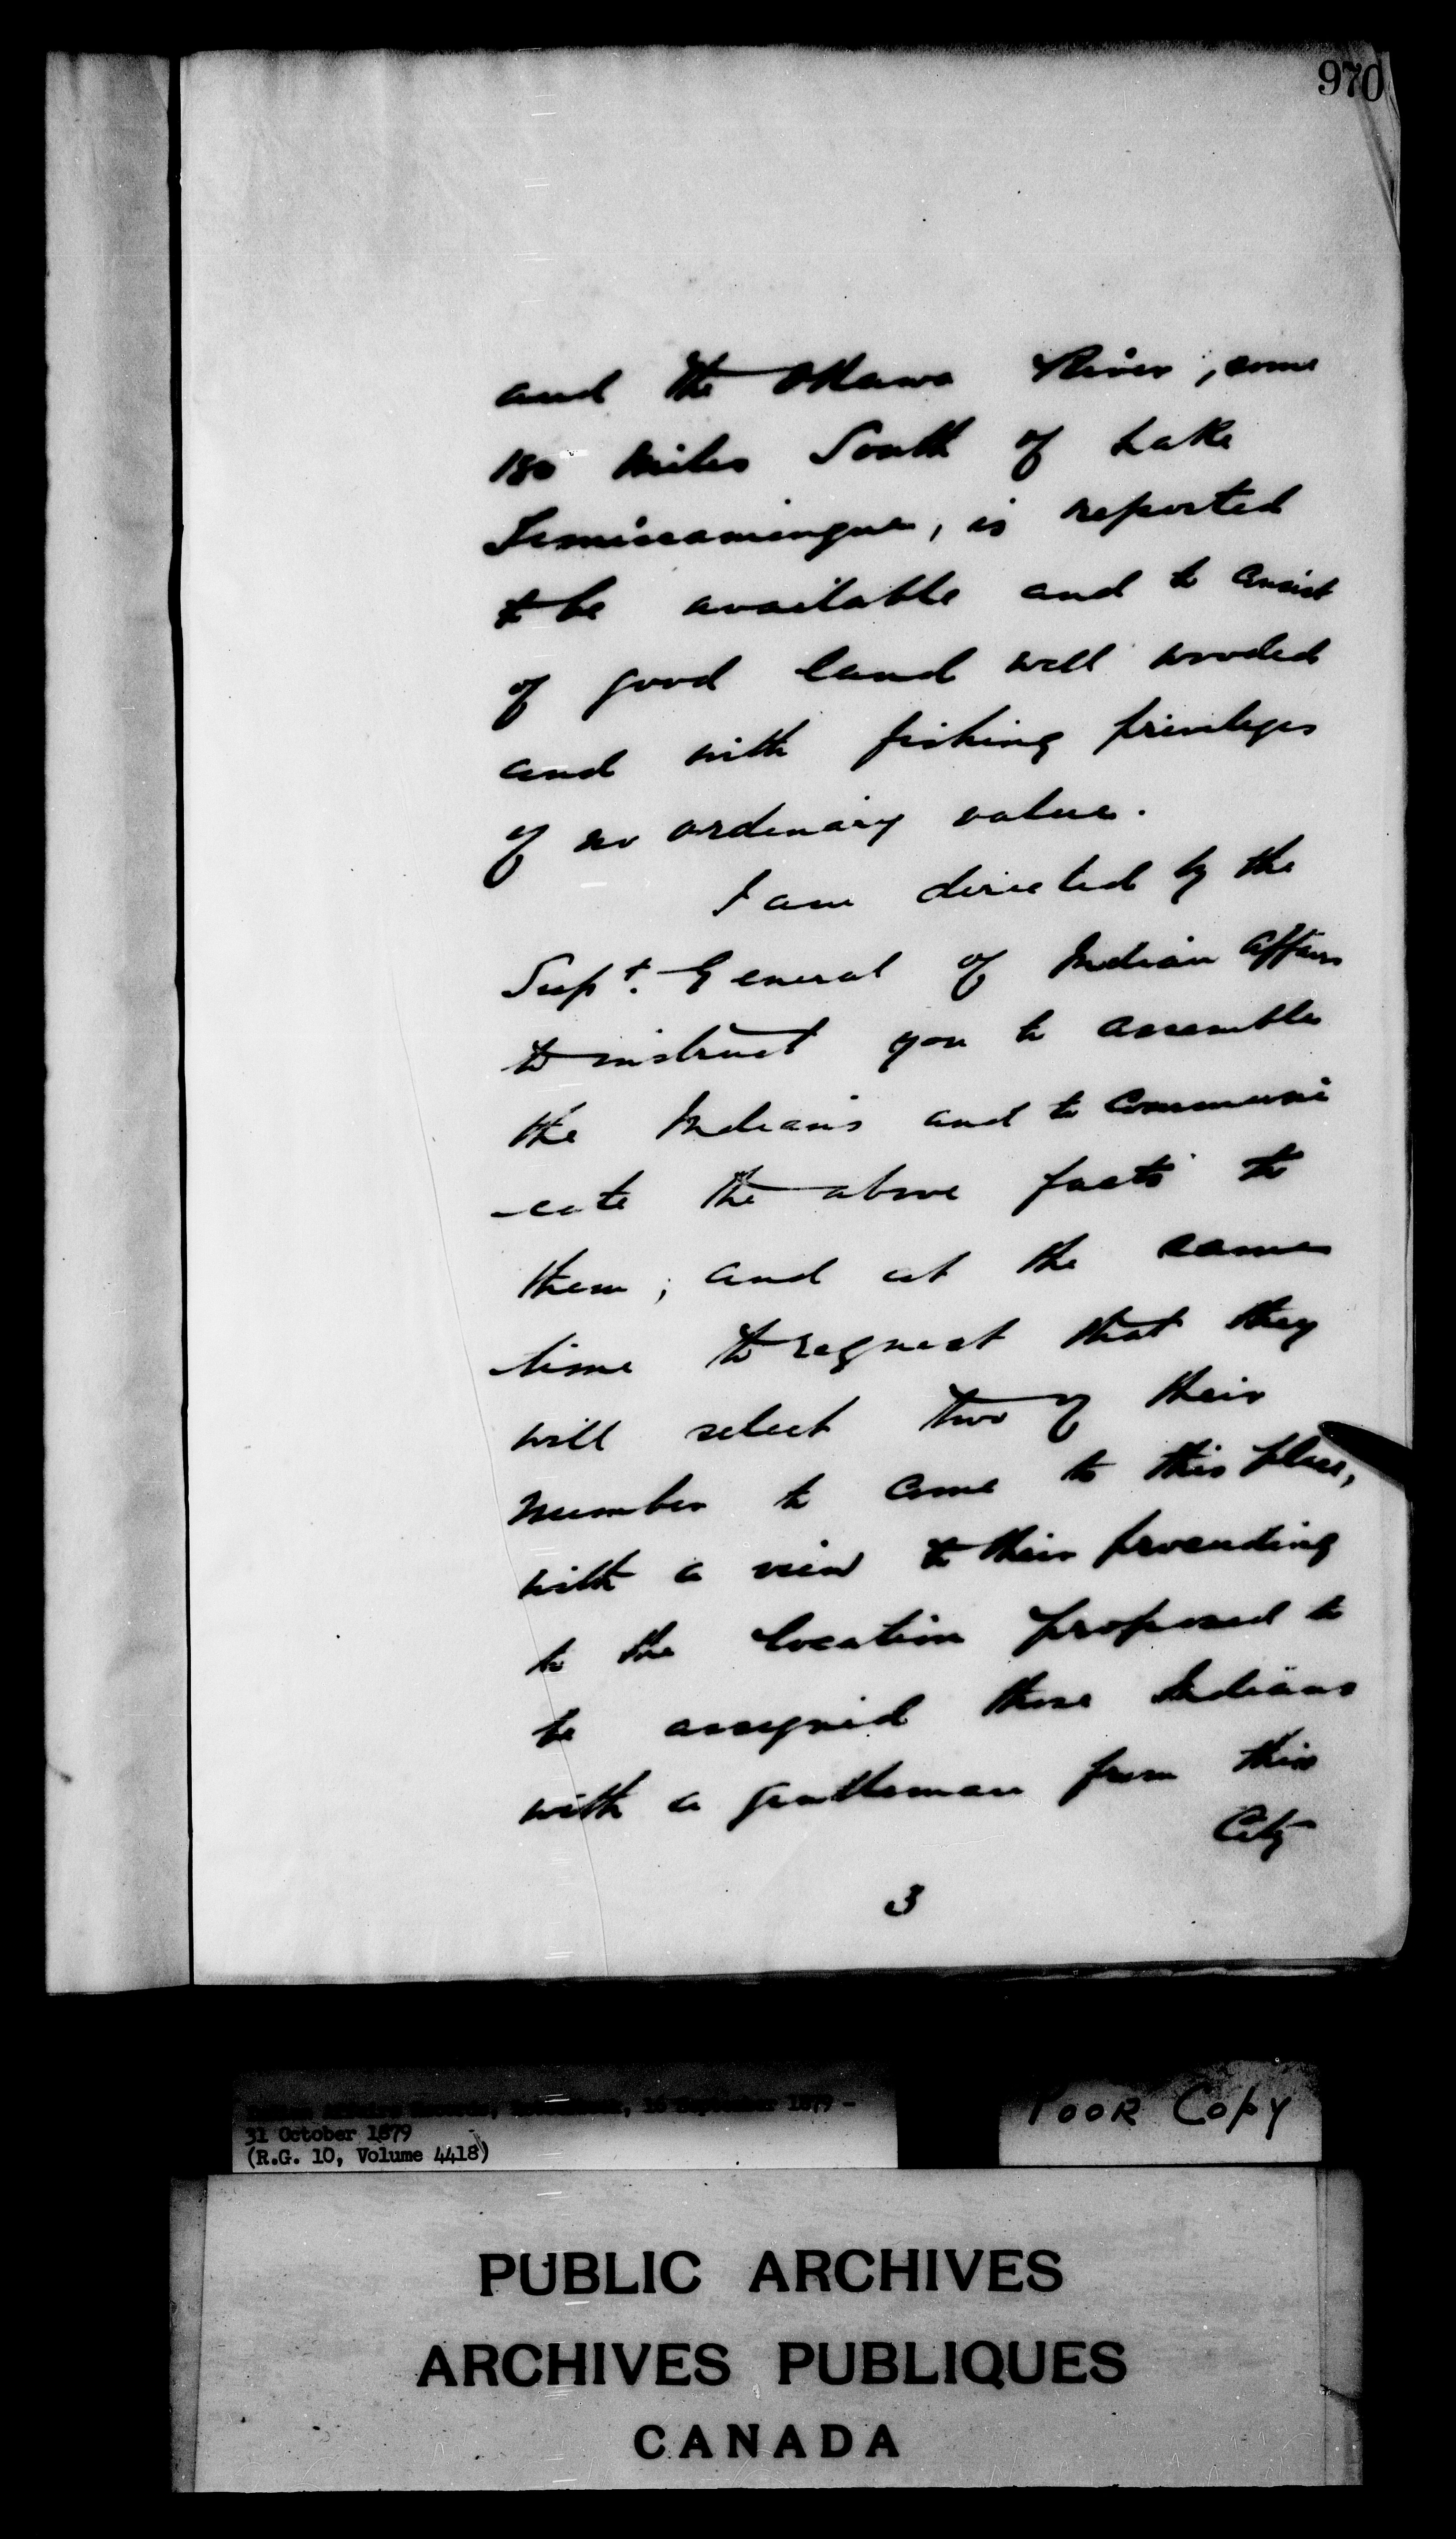 970
and the Ottawa River, some
180 miles South of Lake
Temiscamingue, is reported
to be available and to consist
of good land well wooded
and with fishing privileges
of no ordinary value.
I am directed by the
Supt. General of Indian Affairs
to instruct you to assemble
the Indians and to communi
-cate the above facts to
them, and at the same
time to request that they
will select two of their
number to come to this place,
with a view to their proceeding
to the location proposed to
be assigned those Indians
with a gentleman from this
City
3
Indian Affairs Records, Letterbook, 16 September 1879 -
31 October 1879
(R.G. 10, Volume 4418)
POOR COPY
PUBLIC ARCHIVES
ARCHIVES PUBLIQUES
CANADA